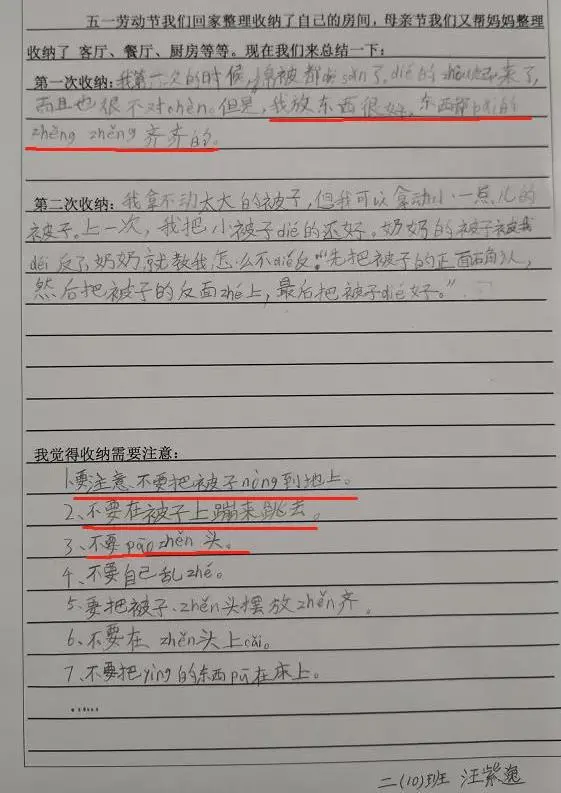 五一劳动节我们回家整理收纳了自己的房间，母亲节我们又帮妈妈整理
收纳了 客厅、餐厅、厨房等等。现在我们来总结一下：
第一次收纳：我第一次的时候，棉被都 sàn了，dié的 起来了，
而且也很不对chèn。但是，我放东西很好，东西都pái的
zhěng zhěng 齐齐的。
第二次收纳：我拿不动太大的被子，但我可以拿动小一点儿的
被子。上一次，我把小被子dié的还好。奶奶的被子被我
dié反了，奶奶就教我怎么不dié反：“先把被子的正面 ，
然后把被子的反面zhé上，最后把被子dié好。”
我觉得收纳需要注意：
1、要注意不要把被子nòng到地上。
2、不要在被子上蹦来跳去。
3、不要pāo zhěn 头。
4、不要自己乱zhé。
5、要把被子、zhěn头摆放zhěn齐。
6、不要在 zhěn头上cǎi。
7、不要把yìng的东西 在床上。
……
二(10)班 汪紫逸